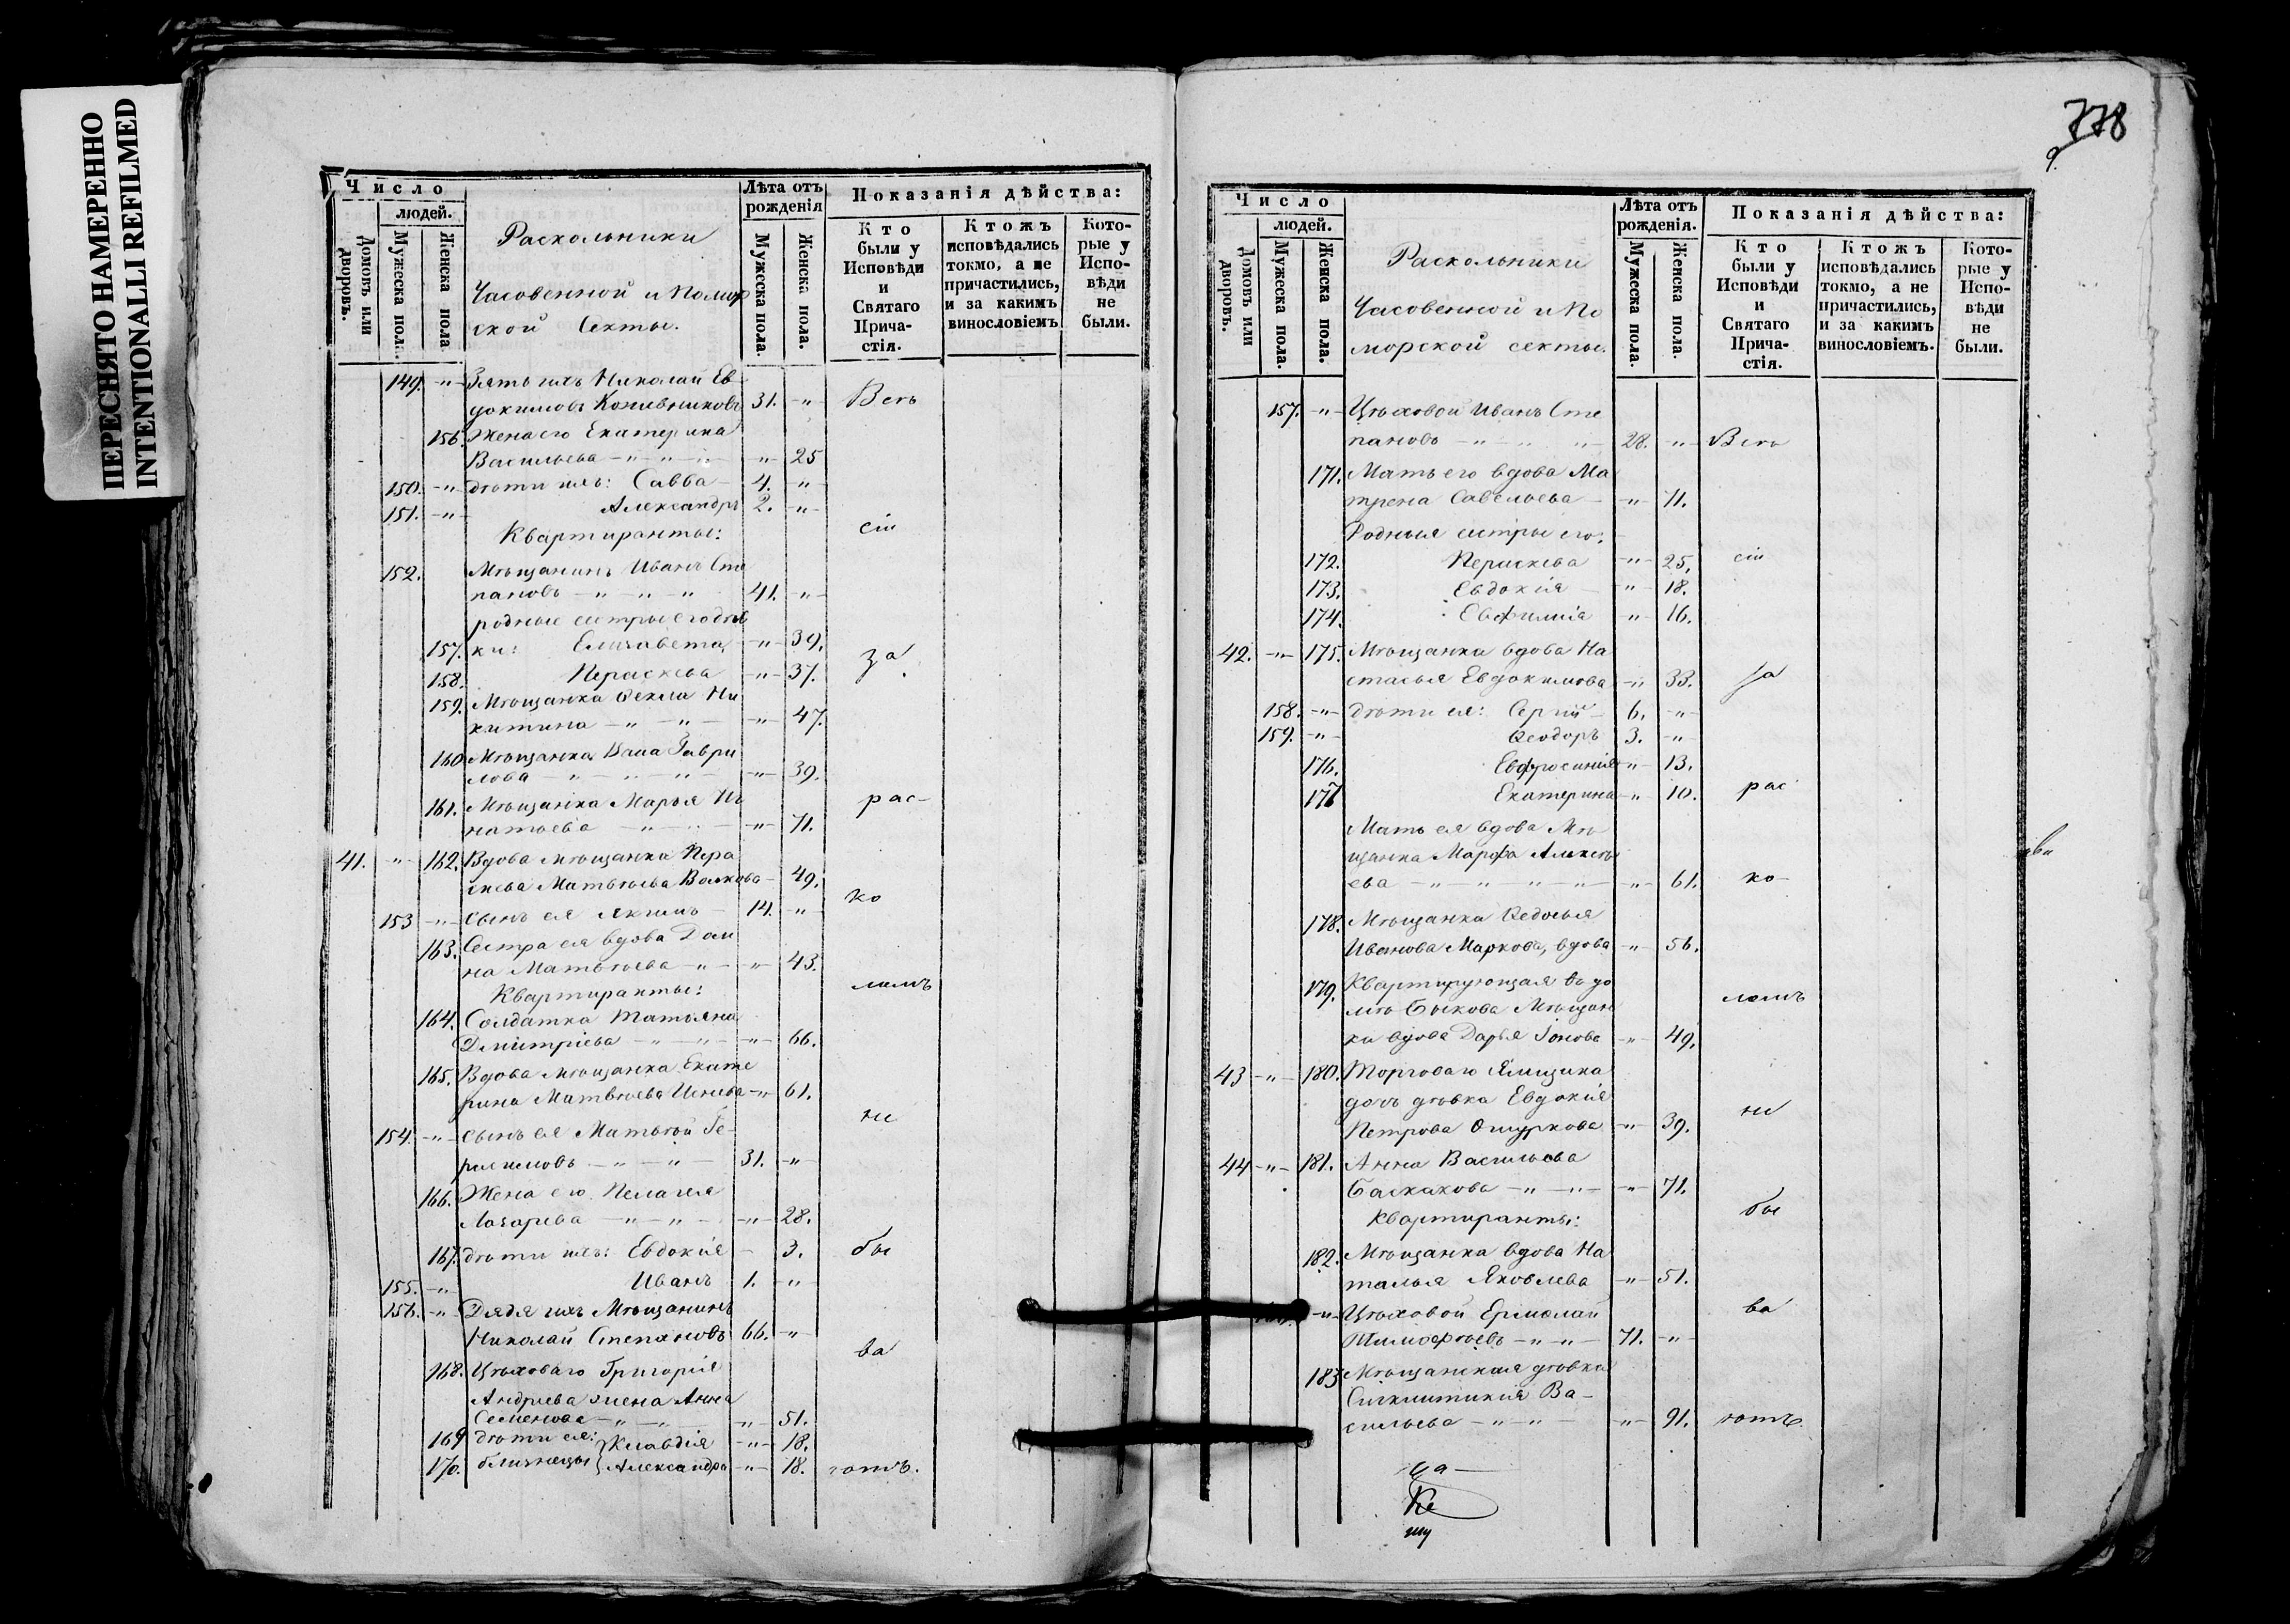 ПЕРЕСНЯТО НАМЕРЕННО
INTENTIONALLI REFILMED
Число
людей.
Домовъ или дворовъ.
Мужеска пола.
Женска пола
Раскольники
Часовенной и Помор
ской Секты.
Лѣта отъ рожденія
Мужеска пола.
Женска пола.
Показанія дѣйства:
Кто были у Исповѣди и Святаго Прича-стія.
Ктожъ исповѣдались токмо, а не причастились, и за какимъ винословіемъ
Кото-рые у Испо-вѣди не были.
149. -"- Зять ихъ Николай Ев
докимовъ Кожевниковъ 31. -"- Веѣ
156. Жена его Екатерина
Васильева -"- 25
150. -"- дѣти ихъ: Савва 4. -"-
151. -"- Александръ 2. -"-
Квартиранты: сіи
152. Мѣщанинъ Иванъ Сте
пановъ -"- 41. -"-
родные сестры его дѣв
157. ки: Елизавета -"- 39.
158. Пераскева -"- 37. за
159. Мѣщанка Фекла Ни
китина -"- 47.
160 Мѣщанка Анна Гаври
лова -"- 39.
161. Мѣщанка Марья Иг
натьева -"- 71. рас-
41. " 162. Вдова мѣщанка Пера
скева Матвѣева Волкова - 49. ко
153 -"- сынъ ея Якимъ 14. -"-
163. Сестра ея вдова Дом
на Матвѣева -"- 43.
Квартиранты: ломъ
164. Солдатка Татьяна
Дмитріева -"- 66.
165. Вдова мѣщанка Екате
рина Матвѣева -"- 61.
154. -"- сынъ ея Матвѣй Ге- не
расимовъ -"- 31. -"-
166. Жена его Пелагея
Лазарева -"- 28.
167. дѣти ихъ: Евдокія - 3. бы
155. -"- Иванъ 1. -"-
156. -"- Дядя ихъ Мѣщанинъ
Николай Степановъ 66. -"- ва
168. Цѣховаго Григорія
Андреева жена Анна
Семенова -"- 51.
169 дѣти ея: Клавдія -"- 18.
170. близнецы Александра -"- 18. ютъ.
778
Число
людей.
Домовъ или дворовъ.
Мужеска пола.
Женска пола.
Раскольники
Часовенной и По
морской секты.
Лѣта отъ рожденія.
Мужеска пола.
Женска пола.
Показанія дѣйства:
Кто были у Исповѣди и Святаго Прича-стія.
Ктожъ исповѣдались токмо, а не причастились, и за какимъ винословіемъ.
Кото-рые у Испо-вѣди не были.
157. -"- Цѣховой Иванъ Сте
пановъ -"- 28. -"- Веѣ
171. Мать его вдова Ма
трена Савельева -"- 71.
Родныя сестры его:
172. Пераскева -"- 25. сіи
173. Евдокія " 18.
174. Евфимія " 16.
42. -"- 175. Мѣщанка вдова На
стасья Евдокимова -"- 33. за
158. -"- дѣти ея: Сергій 6. -"-
159. -"- Ѳеодоръ 3. -"-
176. Евфросинія " 13.
177 Екатерина " 10. рас
Мать ея вдова Мѣ
щанка Марфа Алексѣ
ева -"- 61. ко-
178. Мѣщанка Ѳедосья
Иванова Маркова, вдова -"- 56.
179. Квартирующая въ до
мѣ Быкова Мѣщан ломъ
ка вдова Дарья Іонова -"- 49.
43 -"- 180. Торговаго Ямщика
дочь дѣвка Евдокія не
Петрова Ошуркова -"- 39.
44 -"- 181. Анна Васильева
Баскакова -"- 71.
квартиранты: бы
182. Мѣщанка вдова На
талья Яковлева -"- 51.
-"- Цѣховой Ермолай ва
Тимофѣевъ -"- 71. -"-
183 Мѣщанская дѣвка
Синклитикія Ва-
сильева -"- 91. ютъ.